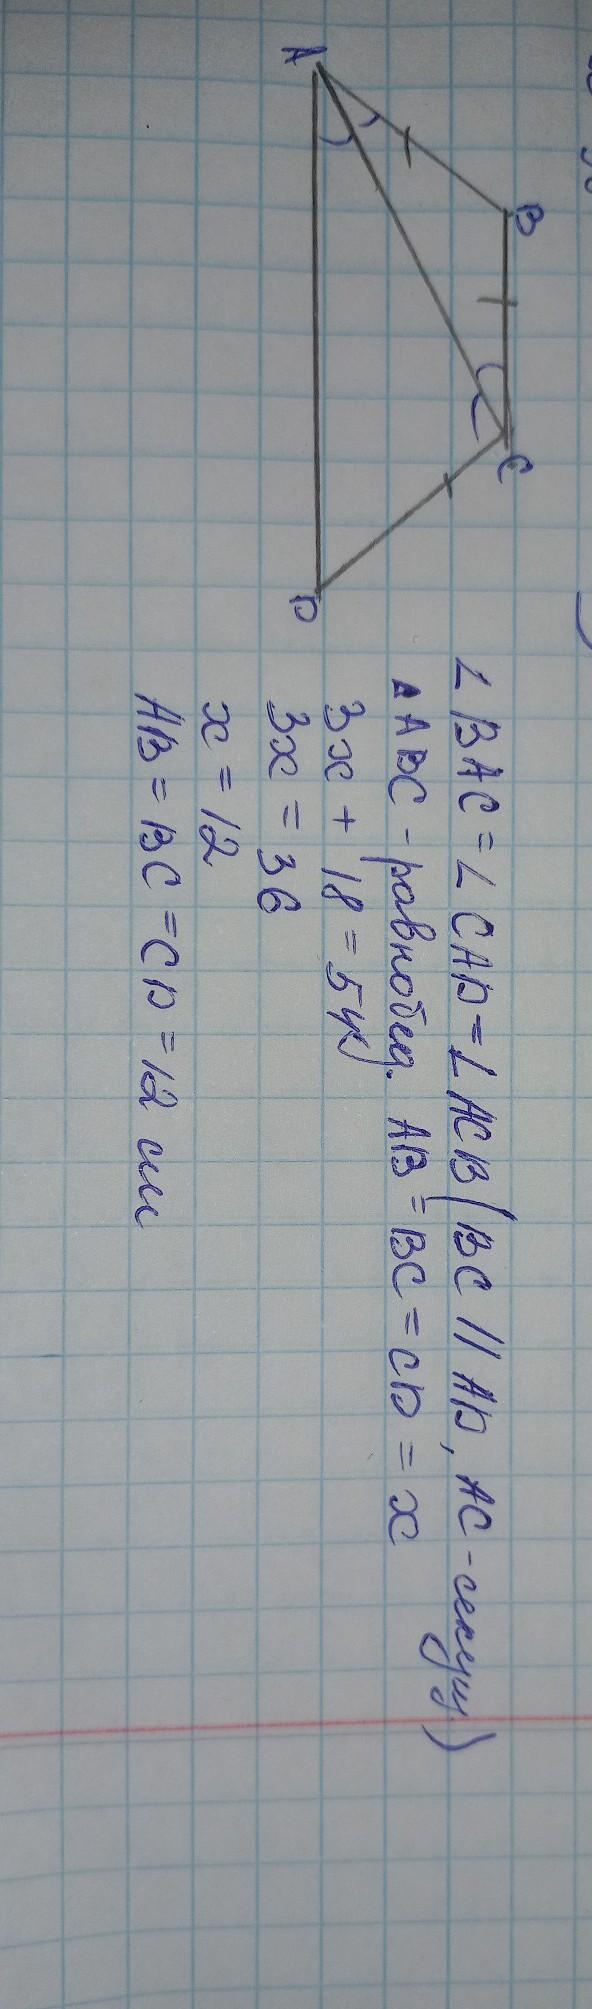 A
B
C
D
∠BAC = ∠CAD = ∠ACB (BC || AD, AC - секущ)
▲ABC - равнобед. AB = BC = CD = x
3x + 18 = 54
3x = 36
x = 12
AB = BC = CD = 12 см